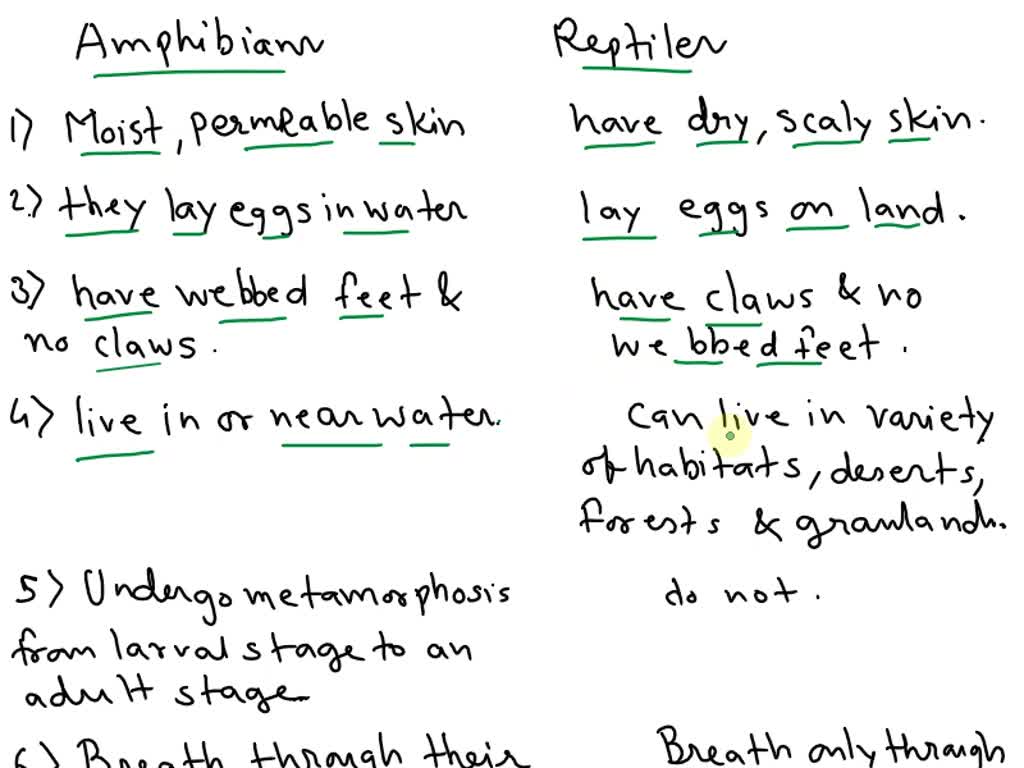 Amphibians Reptiles
1) Moist, permeable skin have dry, scaly skin.
2) they lay eggs in water lay eggs on land.
3) have webbed feet & have claws & no
no claws. webbed feet.
4) live in or near water. can live in variety
of habitats, deserts,
forests & grasslands.
5) Undergo metamorphosis do not.
from larval stage to an
adult stage
6) Breath through their Breath only through